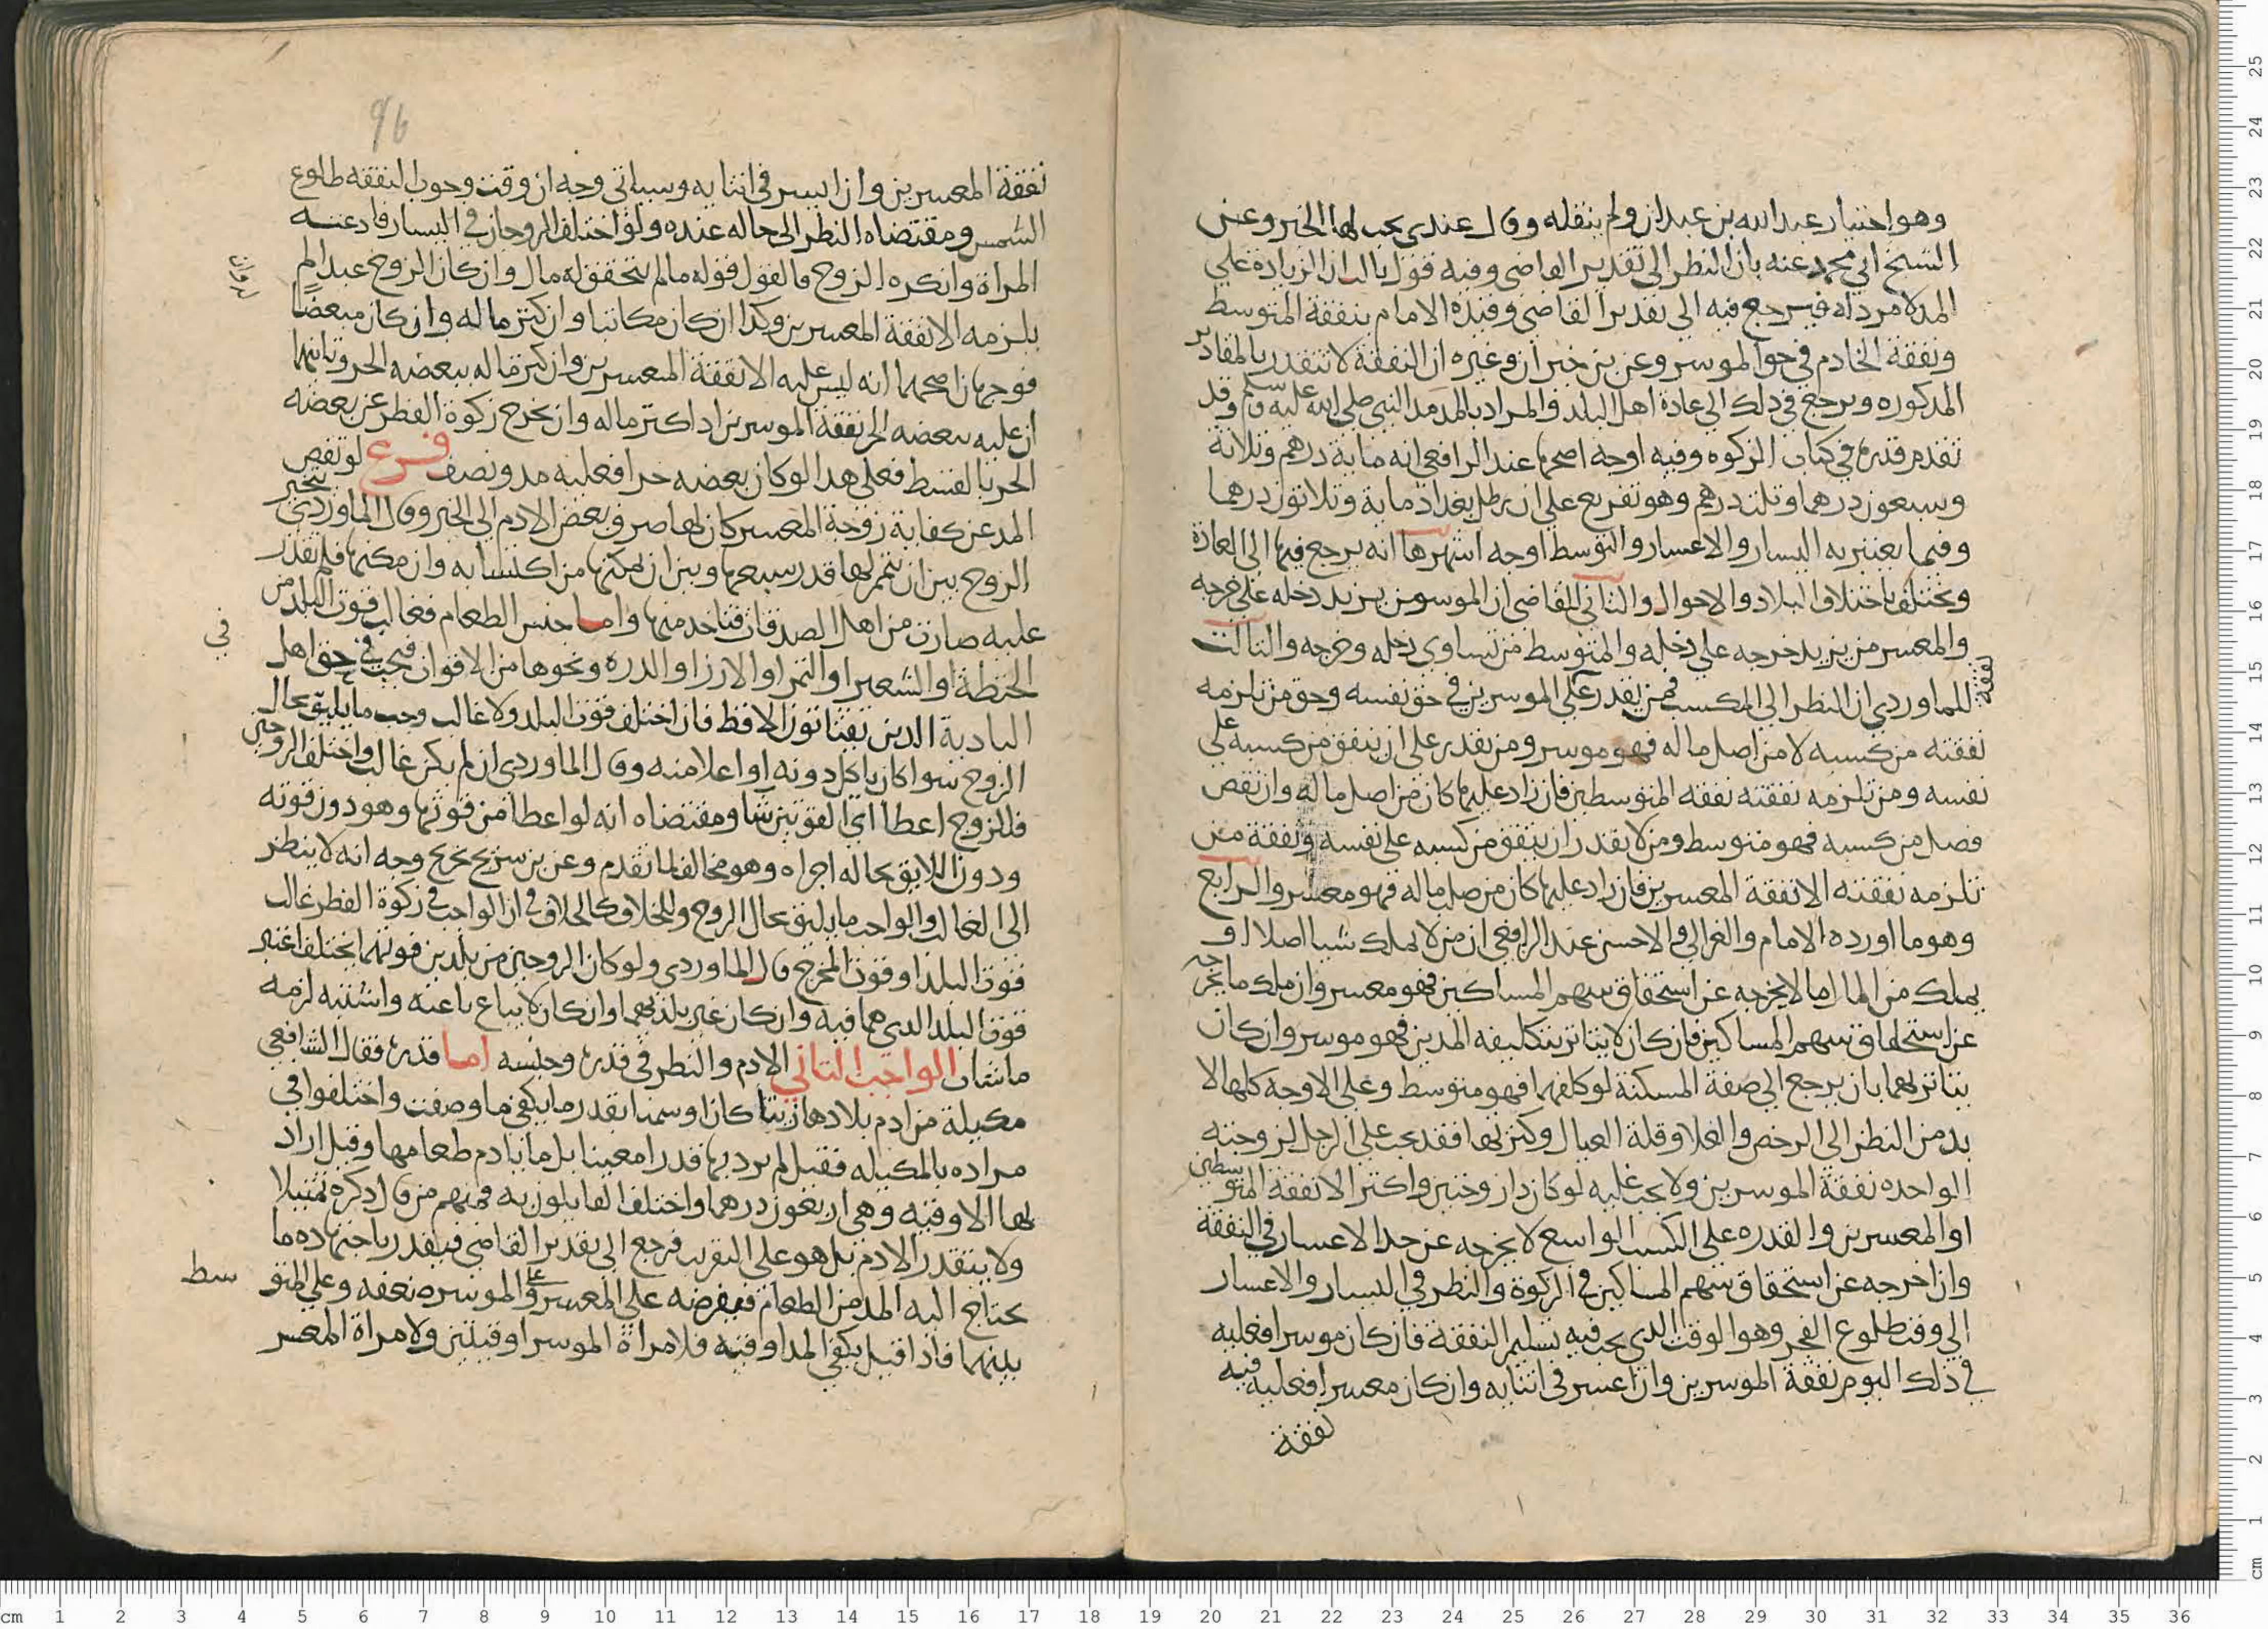 وهو اختيار عبد الله بن عبدان ولم ينقله وقال عندي يجب لها الخبز وعن
الشيخ ابي محمد عنه بان النظر الى تقدير القاضي وفيه قول بالـ ان الزيادة علي
المد لا مرد له فيرجع فيه الى تقدير القاضي وقيده الامام بنفقة المتوسط
ونفقة الخادم في حق الموسر وعن بن خيران وغيره ان النفقة لا تتقدر بالمقادير
المذكوره ويرجع في ذلك الى عادة اهل البلد والمراد بالمد مد النبي صلى الله عليه وسلم وقد
تقدم قدره في كتاب الزكوه وفيه اوجه اصحها عند الرافعي انه ماية درهم وثلاثة
وسبعون درهما وثلث درهم وهو تفريع على ان رطل بغداد ماية وثلاثون درهما
وفيما يعتبر به اليسار والاعسار والتوسط اوجه اشهرها انه يرجع فيها الى العادة
ويختلف باختلاف البلاد والاحوال والثاني للقاضي ان الموسر من يزيد دخله علي خرجه
والمعسر من يزيد خرجه علي دخله والمتوسط من تساوى دخله وخرجه والثالث
للماوردي ان النظر الى المكسب فمن يقدر علي نفقة الموسرين في حق نفسه وحق من تلزمه
نفقته من كسبه لا من اصل ماله فهو موسر ومن يقدر على ان ينفق من كسبه على
نفسه ومن تلزمه نفقته نفقه المتوسطين فان زاد عليها كان من اصل ماله وان نقص
فضل من كسبه فهو متوسط ومن لا يقدر ان ينفق من كسبه على نفسه ونفقة من
تلزمه نفقته الا نفقة المعسرين فان زاد عليها كان من صلب ماله فهو معسر والرابع
وهو ما اورده الامام والغزالي والاحسن عند الرافعي ان من لا يملك شيا اصلا او
يملك من المال ما لا يخرجه عن استحقاق سهم المساكين فهو معسر وان ملك ما يخرجه
عن استحقاق سهم المساكين فان كان لا يتاثر بتكليفه المدين فهو موسر وان كان
يتاثر بهما بان يرجع الى صفة المسكنة لو كلفهما فهو متوسط وعلى الاوجه كلها لا
بد من النظر الى الرخص والغلا وقلة العيال وكثرتها فقد يجب على الرجل لزوجته
الواحده نفقة الموسرين ولا يجب عليه لو كان ذا زوجتين واكثر الا نفقة المتوسطين
او المعسرين والقدره على الكسب الواسع لا يخرجه عن حد الاعسار في النفقة
وان اخرجه عن استحقاق سهم المساكين في الزكوة والنظر في اليسار والاعسار
الي وقت طلوع الفجر وهو الوقت الذي يجب فيه تسليم النفقة فان كان موسرا فعليه
في ذلك اليوم نفقة الموسرين وان اعسر في اثنايه وان كان معسرا فعليه فيه
نفقة
96
نفقة المعسرين وان ايسر في اثنايه وسياتي وجه ان وقت وجوب النفقه طلوع
الشمس ومقتضاه النظر الى حاله عنده ولو اختلف الزوجان في اليسار فادعته
المراة وانكره الزوج فالقول قوله ما لم يتحقق له مال وان كان الزوج عبدا لم
يلزمه الا نفقة المعسرين وكذا ان كان مكاتبا وان كثر ماله وان كان مبعضا
فوجهان اصحهما انه ليس عليه الا نفقة المعسرين وان كثر ماله ببعضه الحر وثانيهما
ان عليه ببعضه الحر نفقة الموسرين اذا كثر ماله وان يخرج زكوة الفطر عن بعضه
الحر بالقسط فعلى هذا لو كان بعضه حرا فعليه مد ونصف فرع لو نقص
المد عن كفاية زوجة المعسر كان لها صرف بعض الادم الى الخبز وقال الماوردي يتخير
الزوج بين ان يتمم لها قدر سبعها وبين ان يمكنها من اكتسابه وان مكنها فلم تقدر
عليه صارت من اهل الصدقات فتاخذ منها واما جنس الطعام فغالب قوت البلد من
الحنطة او الشعير او التمر او الارز او الذره ونحوها من الاقوات فيجب في حق اهل
في
البادية الذين يقتاتون الاقط فان اختلف قوت البلد ولا غالب وجب ما يليق بحال
الزوج سوا كان ياكل دونه او اعلا منه وقال الماوردي ان لم يكن غالب واختلف الزوجين
فللزوج اعطا اي القوتين شا ومقتضاه انه لو اعطا من قوتها وهو دون قوته
ودون اللايق بحاله اجزاه وهو مخالف لما تقدم وعن بن سريج تخريج وجه انه لا ينظر
الى الغالب والواجب ما يليق بحال الزوج وللخلاف كالخلاف في ان الواجب في زكوة الفطر غالب
قوت البلد او قوت المخرج قال الماوردي ولو كان الزوجين من بلدين قوتهما يختلف اعتبر
قوت البلد الذي هما فيه وان كان غير بلديهما وان كان لا يباع باعته واشتته لزمه
ما شات الواجب الثاني الادم والنظر في قدره وجنسه اما قدره فقال الشافعي
مكيلة من ادم بلادها زيتا كان او سمنا بقدر ما يكفي ما وصفت واختلفوا في
مراده بالمكيله فقيل لم يرد بها قدرا معينا بل ما يادم طعامها وقيل اراد
بها الاوقيه وهي اربعون درهما واختلف القايلون به فمنهم من قال ذكره تمثيلا
ولا يتقدر الادم بل هو على التقريب فرجع الى تقدير القاضي فيقدر باجتهاده ما
يحتاج اليه المد من الطعام فيفرضه على المعسر وعلى الموسر ضعفه وعلي المتو سط
بينهما فاذا قيل يكفي المد اوقيه فلامراة الموسر اوقيتين ولامراة المعسر